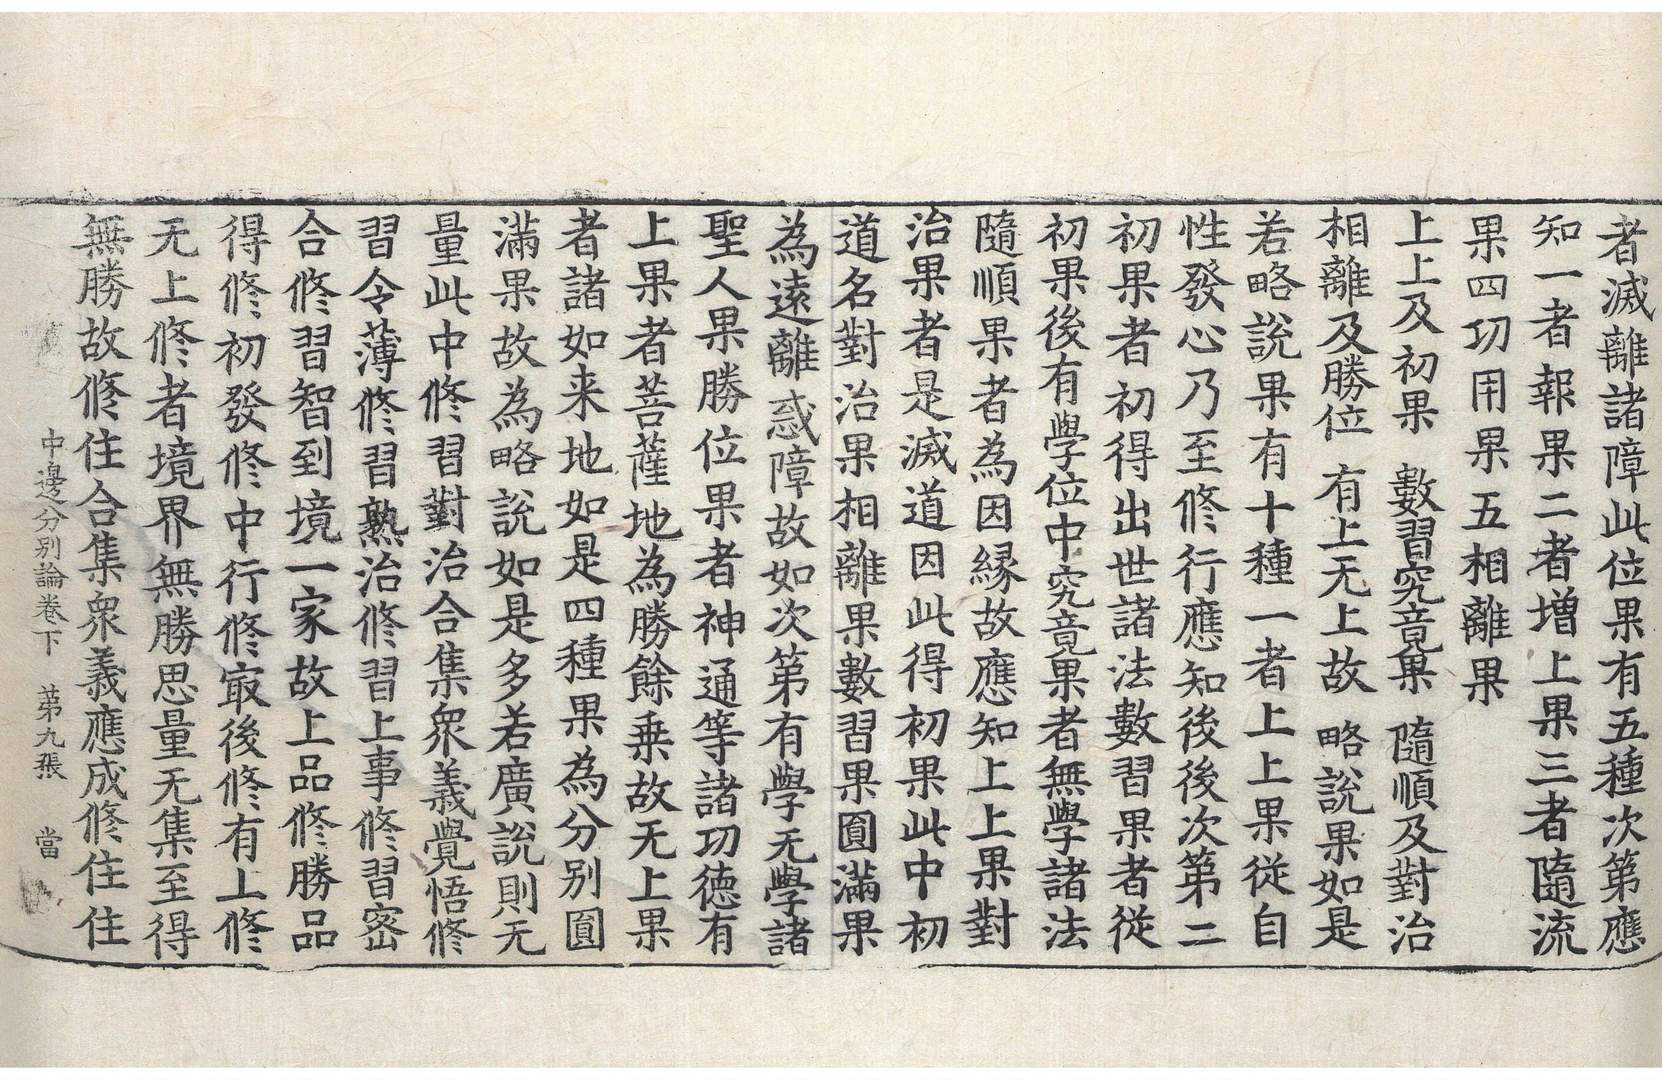 者滅離諸障此位果有五種次第應
知一者報果二者增上果三者隨流
果四功用果五相離果
上上及初果　數習究竟果　隨順及對治
相離及勝位　有上无上故　略說果如是
若略說果有十種一者上上果從自
性發心乃至修行應知後後次第二
初果者初得出世諸法數習果者從
初果後有學位中究竟果者無學諸法
隨順果者為因緣故應知上上果對
治果者是滅道因此得初果此中初
道名對治果相離果數習果圓滿果
為遠離惑障故如次第有學无學諸
聖人果勝位果者神通等諸功德有
上果者菩薩地為勝餘乘故无上果
者諸如来地如是四種果為分別圓
滿果故為略說如是多若廣說則无
量此中修習對治合集衆義覺悟修
習令薄修習熟治修習上事修習密
合修習智到境一家故上品修勝品
得修初發修中行修㝡後修有上修
无上修者境界無勝思量无集至得
無勝故修住合集衆義應成修住住
中邊分別論卷下　第九張　當